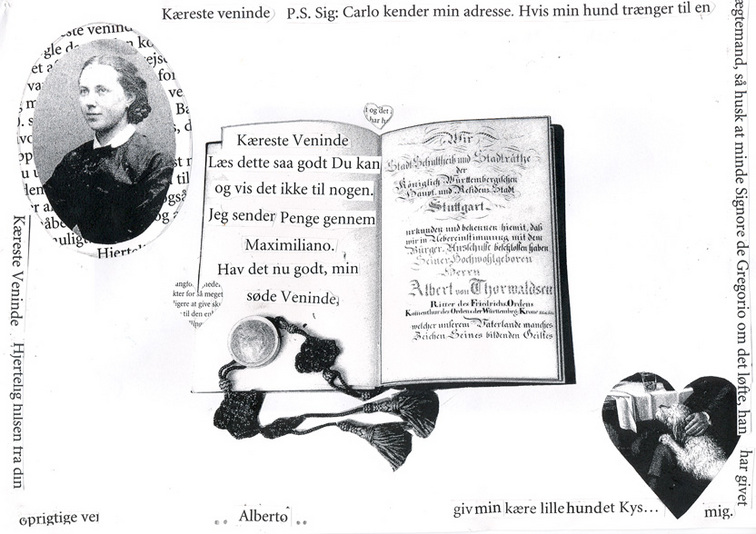 Kæreste veninde P.S. Sig: Carlo kender min adresse. Hvis min hund trænger til en
ægtemand, så husk at minde Signore de Gregorio om det løfte, han har givet
mig.
Kæreste Veninde
Læs dette saa godt Du kan
og vis det ikke til nogen.
Jeg sender Penge gennem
Maximiliano.
Hav det nu godt, min
søde Veninde,
Wir
Stadt Schultheiß und Stadträthe
der
Königlich Württembergischen
Haupt und Residenz Stadt
Stuttgart
urkunden und bekennen hiemit, daß
wir in Uebereinstimmung mit dem
Bürger Ausschusse beschlossen haben
Seiner Hochwohlgeboren
Herrn
Albert von Thorwaldsen
Ritter des Friedrichs Ordens
welcher unserem Vaterlande manches
Zeichen Seines bildenden Geistes
Kæreste Veninde Hjertelig hilsen fra din
oprigtige
.. Alberto ..
giv min kære lille hund et Kys...